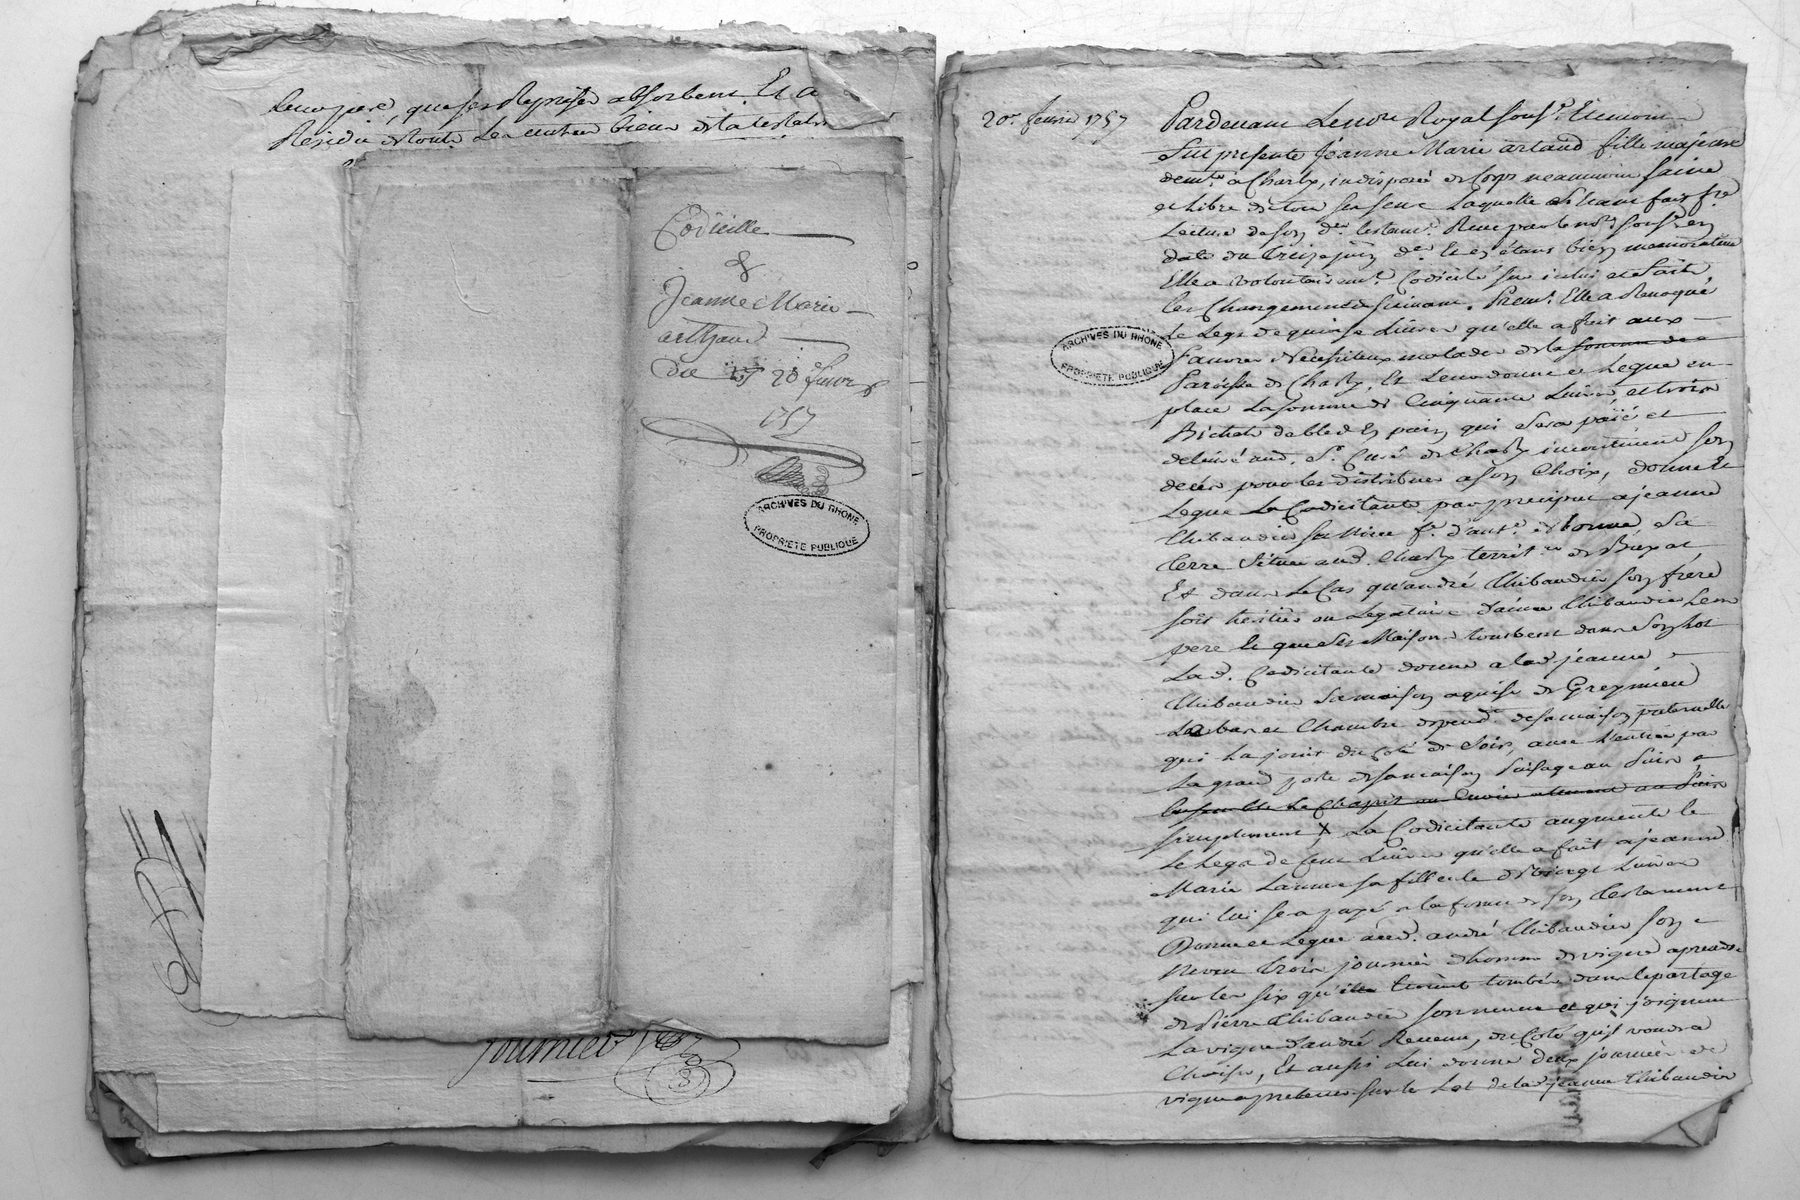 que ses Reprises absorbent. Et a
Residu de toute Les autres biens de la testatr
Codicille
de
Jeanne Marie
arthaud
du 20 fevrier
1757
ARCHIVES DU RHONE
PROPRIETE PUBLIQUE
fournier
20e. fevrier 1757
Pardevant Le notre Royal sousne. Et temoins
fut presente Jeanne Marie artaud fille majeure
demte. a Charly, indisposée de Corps neanmoins saine
et Libre de tous ses sens Laquelle S'étant fait fre.
Lecture de son der. testamt. Reçu par le nore. sousne. en
date du treize juin der. Et s'y étant bien memoratiue
Elle a volontairemt. Codicillé sur icelui et fait
les Changements suiuant. Premt. Elle a Revoqué
Le Legs de quinze Liures qu'elle a fait aux
Pauvres Necessiteux malades de la somme de
Paroisse de Charly, Et Leur donne et Legue en
place La somme de Cinquante Liures et trois
Bichets de bled En pain qui Sera païé et
deliuré aud. Sr. Curé de Charly incontinent son
deces pour les distribuer a son Choix, donne Et
Legue La Codicitante par preciput a jeanne
thibaudier sa Niece fe. d'ant. de bonne Sa
terre Située aud. Charly territre. de
Et dans Le Cas qu'andré thibaudier son frere
soit héritier ou Legataire d'aimé thibaudier Leur
pere Et que Les Maisons tombent dans Son Lot
La d. Codicitante donne a lad. jeanne
thibaudier Sa maison aquise de Greymieu
La bas et Chambre depend. de sa maison paternelle
qui La joint du Coté de Soir, auec L'entrée par
La grand porte de sa maison Passage au Puis
simplement X La Codicitante augmente le
Le Legs de Cent Liures qu'elle a fait a jeanne
Marie Laurent sa filleule de Vingt Liures
qui lui sera payé a la forme de son testament
Donne et Legue aud. andré thibaudier son
Neveu trois journées d'homme de vigne a prendre
sur les six qu'ille tombée dans le partage
de Pierre thibaudier son neveu et qui joignent
La vigne d'andré Reuenu, du Coté qu'il voudra
Choisir, Et aussi Lui donne deux journées de
vigne a prendre sur le Lot de lad. jeanne thibaudier
ARCHIVES DU RHONE
PROPRIETE PUBLIQUE